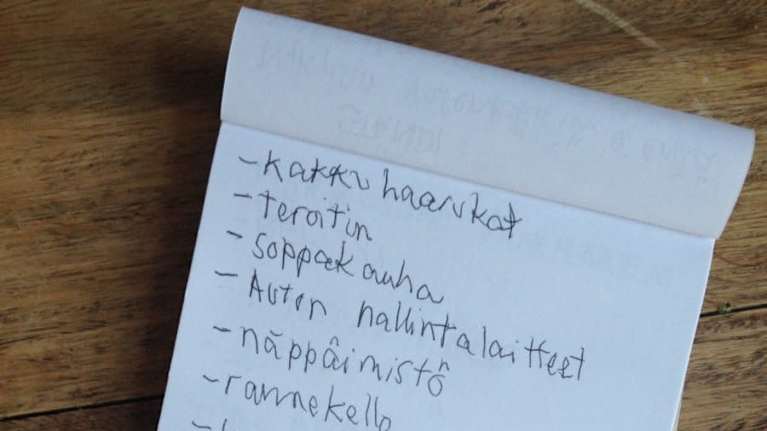 - kakkuhaarukat
- teroitin
- soppakauha
- Auton hallintalaitteet
- näppäimistö
- rannekello
-